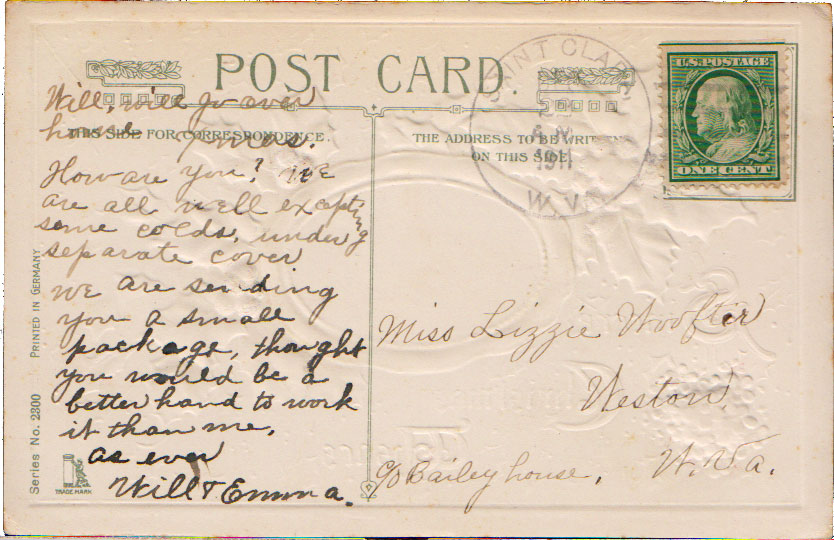 POST CARD.
THIS SIDE FOR CORRESPONDENCE.
THE ADDRESS TO BE WRITTEN
ON THIS SIDE.
SAINT CLARA
A.M.
1911
W. VA.
U.S. POSTAGE
ONE CENT
Will, will go over
home
How are you? We
are all well excepting
some colds, under
separate cover
We are sending
you a small
package, thought
you would be a
better hand to work
it than me.
as ever
Will & Emma.
Miss Lizzie Woofter
Weston
C/O Bailey house, W. Va.
Series No. 2300 PRINTED IN GERMANY
TRADE MARK